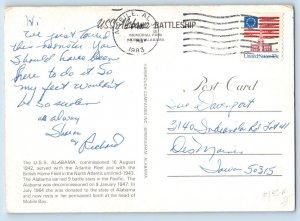 Hi
We just toured
this monster You
should have been
here to do it so
my feet wouldn't
be so swollen
as always
Sharon
Richard
THE U.S.S. ALABAMA, commissioned 16 August
1942, served with the Atlantic Fleet and with the
British Home Fleet in the North Atlantic until mid-1943.
The Alabama earned 9 battle stars in the Pacific. The
Alabama was decommissioned on 9 January 1947. In
July 1964 she was docked permanently at the head of
Mobile Bay.
USS BATTLESHIP
MOBILE, AL
MEMORIAL PARK
1983
United States
Post Card
Sue Davenport
3140 Indianola Rd Lot 41
Des Moines
Iowa 50315